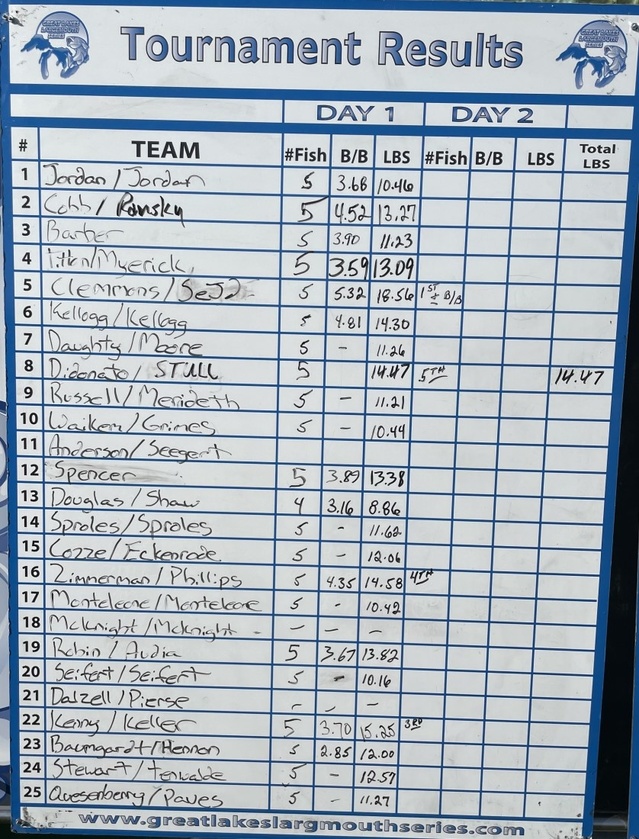 GREAT LAKES LARGEMOUTH SERIES Tournament Results GREAT LAKES LARGEMOUTH SERIES
DAY 1 DAY 2
# TEAM #Fish B/B LBS #Fish B/B LBS Total LBS
1 Jordan / Jordan 5 3.68 10.46
2 Cobb / Ronsky 5 4.52 13.27
3 Barber 5 3.90 11.23
4 /Myerick 5 3.59 13.09
5 Clemmons / 5 5.32 18.56 1ST + B/B
6 Kellogg / Kellogg 5 4.81 14.30
7 Daughty / Moore 5 - 11.26
8 Didonato / STULL 5 14.47 5TH 14.47
9 Russell / Merideth 5 - 11.21
10 Waiken / Grimes 5 - 10.44
11 Anderson / Seegert
12 Spencer 5 3.89 13.38
13 Douglas / Shaw 4 3.16 8.86
14 Sproles / Sproles 5 - 11.62
15 Cozze / Eckenrode 5 - 12.06
16 Zimmerman / Phillips 5 4.35 14.58 4TH
17 Monteleone / Monteleone 5 - 10.42
18 McKnight / McKnight - - - -
19 Robin / Audia 5 3.67 13.82
20 Seifert / Seifert 5 - 10.16
21 Dalzell / Pierse - - -
22 Kenny / Keller 5 3.70 15.25 3RD
23 Baumgardt / Hennon 5 2.85 12.00
24 Stewart / 5 - 12.57
25 Quesenberry / Daves 5 - 11.27
www.greatlakeslargmouthseries.com